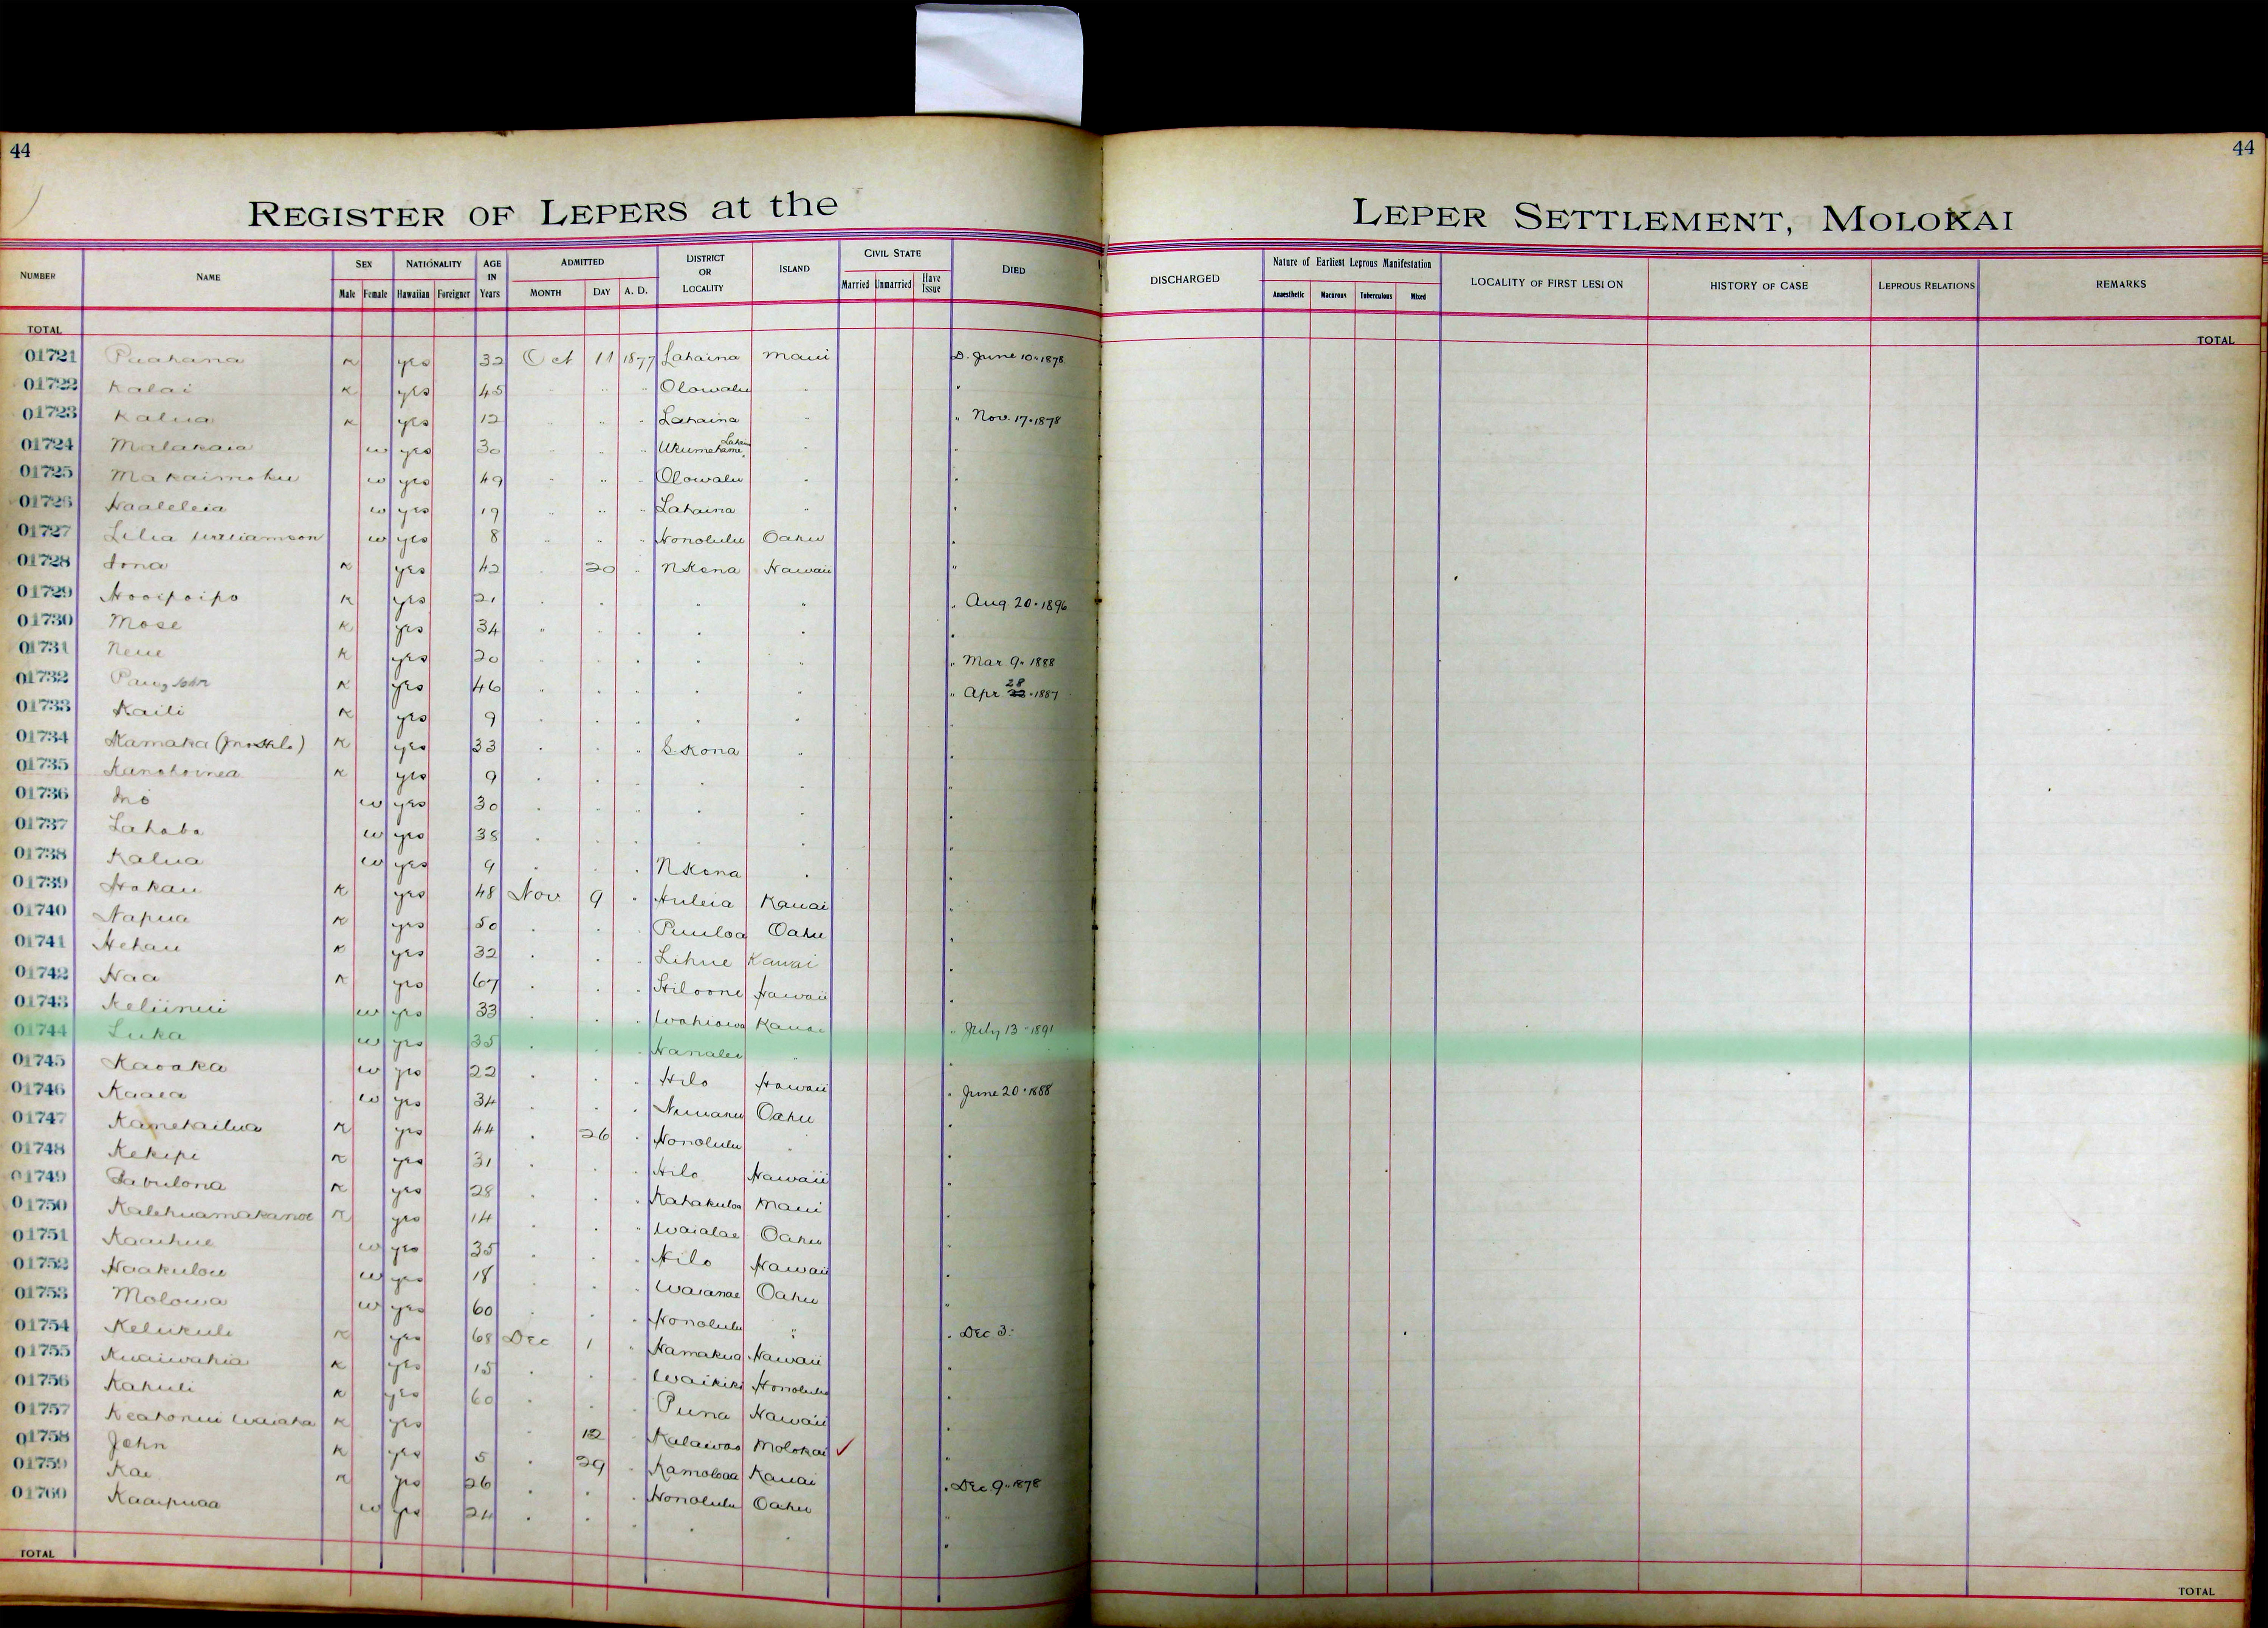 44
44
REGISTER OF LEPERS at the LEPER SETTLEMENT, MOLOKAI
NUMBER NAME SEX Male Female NATIONALITY Hawaiian Foreigner AGE IN Years ADMITTED MONTH DAY A. D. DISTRICT OR LOCALITY ISLAND CIVIL STATE Married Unmarried Have Issue DIED
DISCHARGED Nature of Earliest Leprous Manifestation Anaesthetic Macurous Tuberculous Mixed LOCALITY OF FIRST LESION HISTORY OF CASE LEPROUS RELATIONS REMARKS
TOTAL TOTAL
01721 Puahana K yes 32 Oct 11 1877 Lahaina Maui D. June 10. 1878
01722 Kalai K yes 45 " " " Olowalu " "
01723 Kalua K yes 12 " " " Lahaina " " Nov. 17. 1878
01724 Malakaia w yes 30 " " " Ukumehame, Lahain " "
01725 Makaimoku w yes 49 " " " Olowalu " "
01726 Haaleleia w yes 19 " " " Lahaina " "
01727 Lilia Williamson w yes 8 " " " Honolulu Oahu "
01728 Iona K yes 42 " 20 " N Kona Hawaii "
01729 Hooipoipo K yes 21 " " " " " " Aug. 20. 1896
01730 Mose K yes 34 " " " " " "
01731 Neue K yes 20 " " " " " " Mar. 9. 1888
01732 K yes 46 " " " " " " Apr 28 1887
01733 Kaili K yes 9 " " " " " "
01734 Kamaka K yes 33 " " " S. Kona " "
01735 K yes 9 " " " " " "
01736 w yes 30 " " " " " "
01737 w yes 38 " " " " " "
01738 Kalua w yes 9 " " " N Kona " "
01739 Hokau K yes 48 Nov 9 " Huleia Kauai "
01740 Napua K yes 50 " " " Puuloa Oahu "
01741 Hehau K yes 32 " " " Lihue Kauai "
01742 Naa K yes 67 " " " Hiloone Hawaii "
01743 Keliinui w yes 33 " " " Wahiawa Kauai " July 13. 1891
01744 Luka w yes 35 " " " Hanalei " "
01745 Kaoaka w yes 22 " " " Hilo Hawaii " June 20. 1888
01746 Kaaea w yes 34 " " " Nuuanu Oahu "
01747 Kamekailua K yes 44 " 26 " Honolulu " "
01748 Kekipi K yes 31 " " " Hilo Hawaii "
01749 Zabulona K yes 28 " " " Kahakuloa Maui "
01750 Kalehuamakanoe K yes 14 " " " Waialae Oahu "
01751 Kaaihue w yes 35 " " " Hilo Hawaii "
01752 Haakulou w yes 18 " " " Waianae Oahu "
01753 Molowa w yes 60 " " " Honolulu " " Dec 3.
01754 Kelikuli K yes 68 Dec 1 " Hamakua Hawaii "
01755 Kuaiwahia K yes 15 " " " Waikiki Honolulu "
01756 Kahuli K yes 60 " " " Puna Hawaii "
01757 Keahonui Waiaha K yes " 12 " Kalawao Molokai ✓ "
01758 John K yes 5 " 29 " Kamoloaa Kauai " Dec 9. 1878
01759 Kae K yes 26 " " " Honolulu Oahu "
01760 Kaaipuaa w yes 24 " " " " " "
TOTAL TOTAL